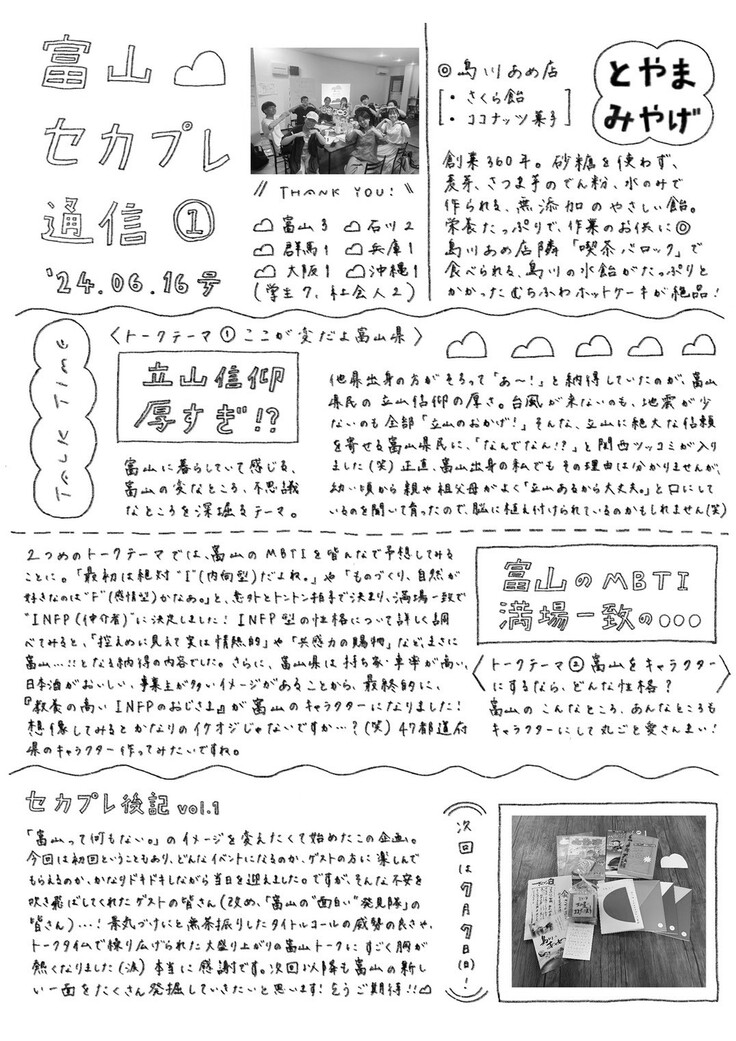 富山
セカプレ
通信①
'24.06.16号
THANK YOU!
富山3 石川2
群馬1 兵庫1
大阪1 沖縄1
(学生7、社会人2)
◎ 島川あめ店
・さくら飴
・ココナッツ菓子
とやま
みやげ
創業360年。砂糖を使わず、
麦芽、さつま芋のでん粉、水のみで
作られる、無添加のやさしい飴。
栄養たっぷりで、作業のお供に◎
島川あめ店隣「喫茶バロック」で
食べられる、島川の水飴がたっぷりと
かかったむちふわホットケーキが絶品!
TALK TIME
〈トークテーマ① ここが変だよ富山県〉
立山信仰
厚すぎ!?
富山に暮らしていて感じる、
富山の変なところ、不思議
なところを深堀るテーマ。
他県出身の方がそろって「あ〜!」と納得していたのが、富山
県民の立山信仰の厚さ。台風が来ないのも、地震が少
ないのも全部「立山のおかげ!」そんな、立山に絶大な信頼
を寄せる富山県民に、「なんでなん!?」と関西ツッコミが入り
ました(笑)正直、富山出身の私でもその理由は分かりませんが、
幼い頃から親や祖父母がよく「立山あるから大丈夫。」と口にして
いるのを聞いて育ったので、脳に植え付けられているのかもしれません(笑)
2つめのトークテーマでは、富山のMBTIを皆んなで予想してみる
ことに。「最初は絶対"I"(内向型)だよね。」や「ものづくり、自然が
好きなのは"F"(感情型)かなあ。」と、意外とトントン拍子で決まり、満場一致で
"INFP(仲介者)"に決定しました! INFP型の性格について詳しく調
べてみると、「控えめに見えて実は情熱的」や「共感力の賜物」など、まさに
富山…!!となる納得の内容でした。さらに、富山県は持ち家・車率が高い、
日本酒がおいしい、事業主が多いイメージがあることから、最終的に、
『教養の高いINFPのおじさま』が富山のキャラクターになりました!
想像してみるとかなりのイケオジじゃないですか…?(笑) 47都道府
県のキャラクター作ってみたいですね。
富山のMBTI
満場一致の○○○
〈トークテーマ② 富山をキャラクター
にするなら、どんな性格?〉
富山のこんなところ、あんなところも
キャラクターにして丸ごと愛さんまい!
セカプレ後記 vol.1
「富山って何もない。」のイメージを変えたくて始めたこの企画。
今回は初回ということもあり、どんなイベントになるのか、ゲストの方に楽しんで
もらえるのか、かなりドキドキしながら当日を迎えました。ですが、そんな不安を
吹き飛ばしてくれたゲストの皆さん(改め、「富山の"面白い"発見隊」の
皆さん)…! 景気づけにと無茶振りしたタイトルコールの威勢の良さや、
トークタイムで繰り広げられた大盛り上がりの富山トークにすごく胸が
熱くなりました(涙) 本当に感謝です。次回以降も富山の新し
い一面をたくさん発掘していきたいと思います! 乞うご期待!!
次回は7月7日(日)!